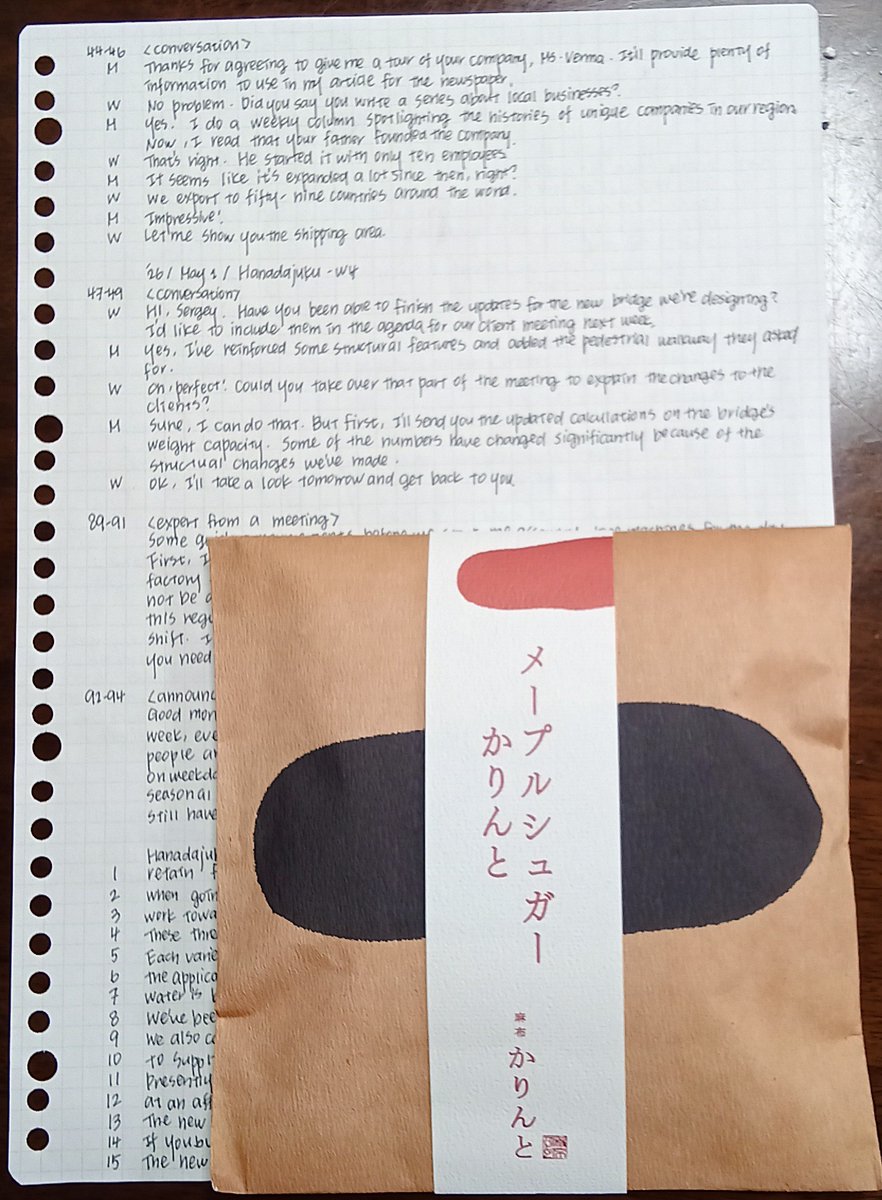 44-46 <conversation>
M Thanks for agreeing to give me a tour of your company, Ms. Verma. It'll provide plenty of
information to use in my article for the newspaper.
W No problem. Did you say you write a series about local businesses?
M Yes. I do a weekly column spotlighting the histories of unique companies in our region.
Now, I read that your father founded the company.
W That's right. He started it with only ten employees
M It seems like it's expanded a lot since then, right?
W We export to fifty-nine countries around the world.
M Impressive!
W Let me show you the shipping area.
'26 / May 1 / Hanadajuku - W4
47-49 <conversation>
W Hi, Sergey. Have you been able to finish the updates for the new bridge we're designing?
I'd like to include them in the agenda for our client meeting next week.
M Yes, I've reinforced some structural features and added the pedestrial walkway they asked
for.
W Oh, perfect! Could you take over that part of the meeting to explain the changes to the
clients?
M Sure, I can do that. But first, I'll send you the updated calculations on the bridge's
weight capacity. Some of the numbers have changed significantly because of the
structual changes we've made.
W OK, I'll take a look tomorrow and get back to you
89-91 <expert from a meeting>
Some
First, I
factory
not be
this
shift. I
you need
92-94 <announc
Good mor
week, eve
people
on weekda
seasonal
still have
Hanadajuk
1 retain
2 when goin
3 work towa
4 These thre
5 Each varie
6 the applica
7 water is
8 We've bee
9 we also c
10 to suppl
11 Presently
12 at an aff
13 The new
14 If you bu
15 The new
メープルシュガー
かりんと
麻布
かりんと